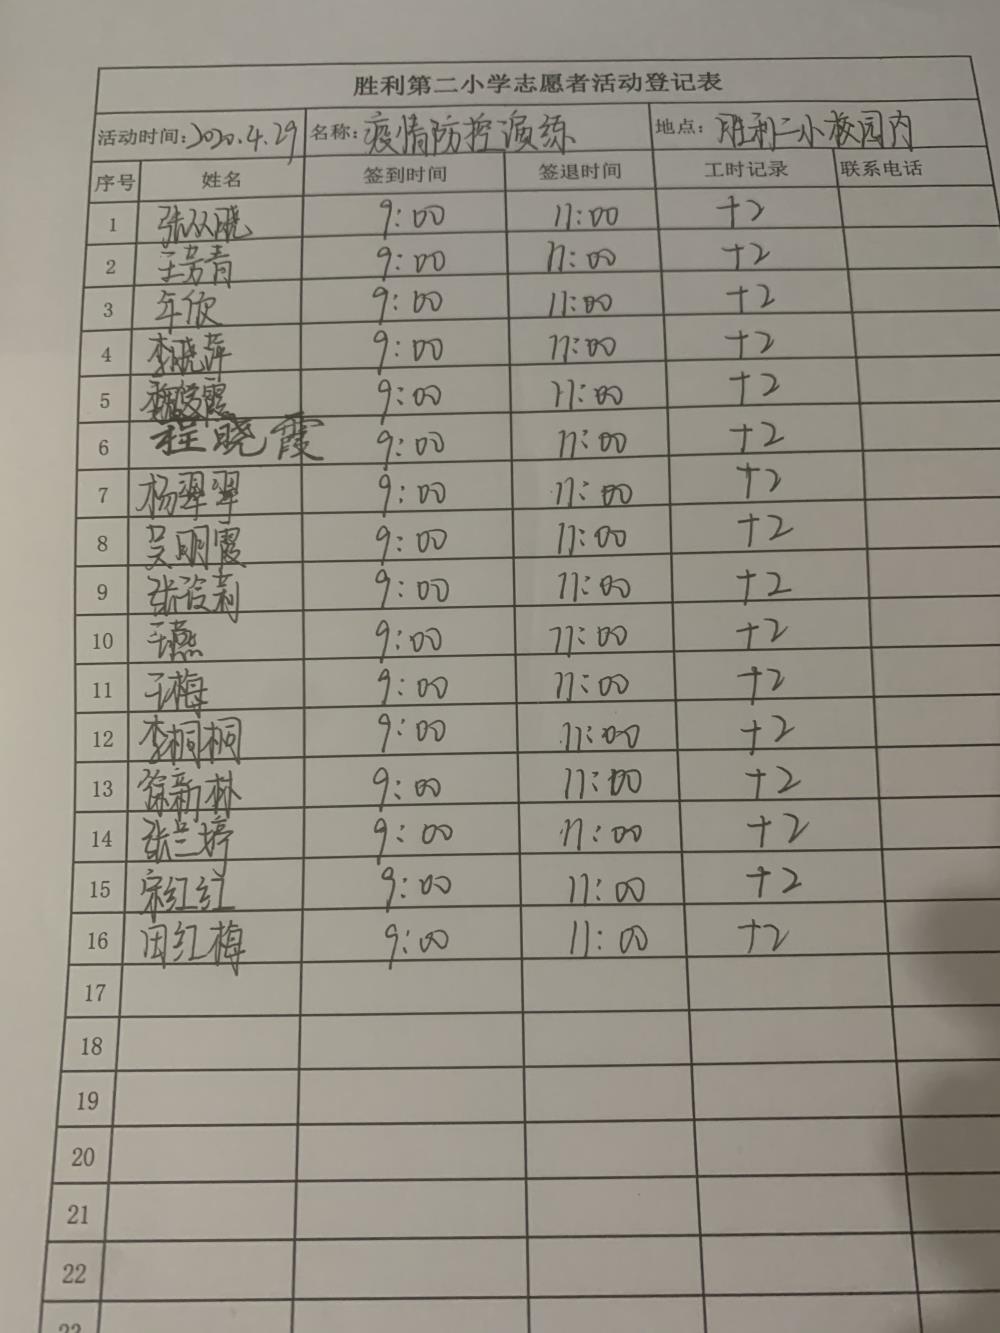 胜利第二小学志愿者活动登记表
活动时间:2020.4.29 名称:疫情防控演练 地点:胜利二小校园内
序号 姓名 签到时间 签退时间 工时记录 联系电话
1 张双晓 9:00 11:00 +2
2 王芳青 9:00 11:00 +2
3 年欣 9:00 11:00 +2
4 李晓萍 9:00 11:00 +2
5 9:00 11:00 +2
6 程晓霞 9:00 11:00 +2
7 杨翠翠 9:00 11:00 +2
8 吴明霞 9:00 11:00 +2
9 9:00 11:00 +2
10 王燕 9:00 11:00 +2
11 于梅 9:00 11:00 +2
12 李桐桐 9:00 11:00 +2
13 徐新林 9:00 11:00 +2
14 张兰婷 9:00 11:00 +2
15 宋红红 9:00 11:00 +2
16 田红梅 9:00 11:00 +2
17
18
19
20
21
22
23